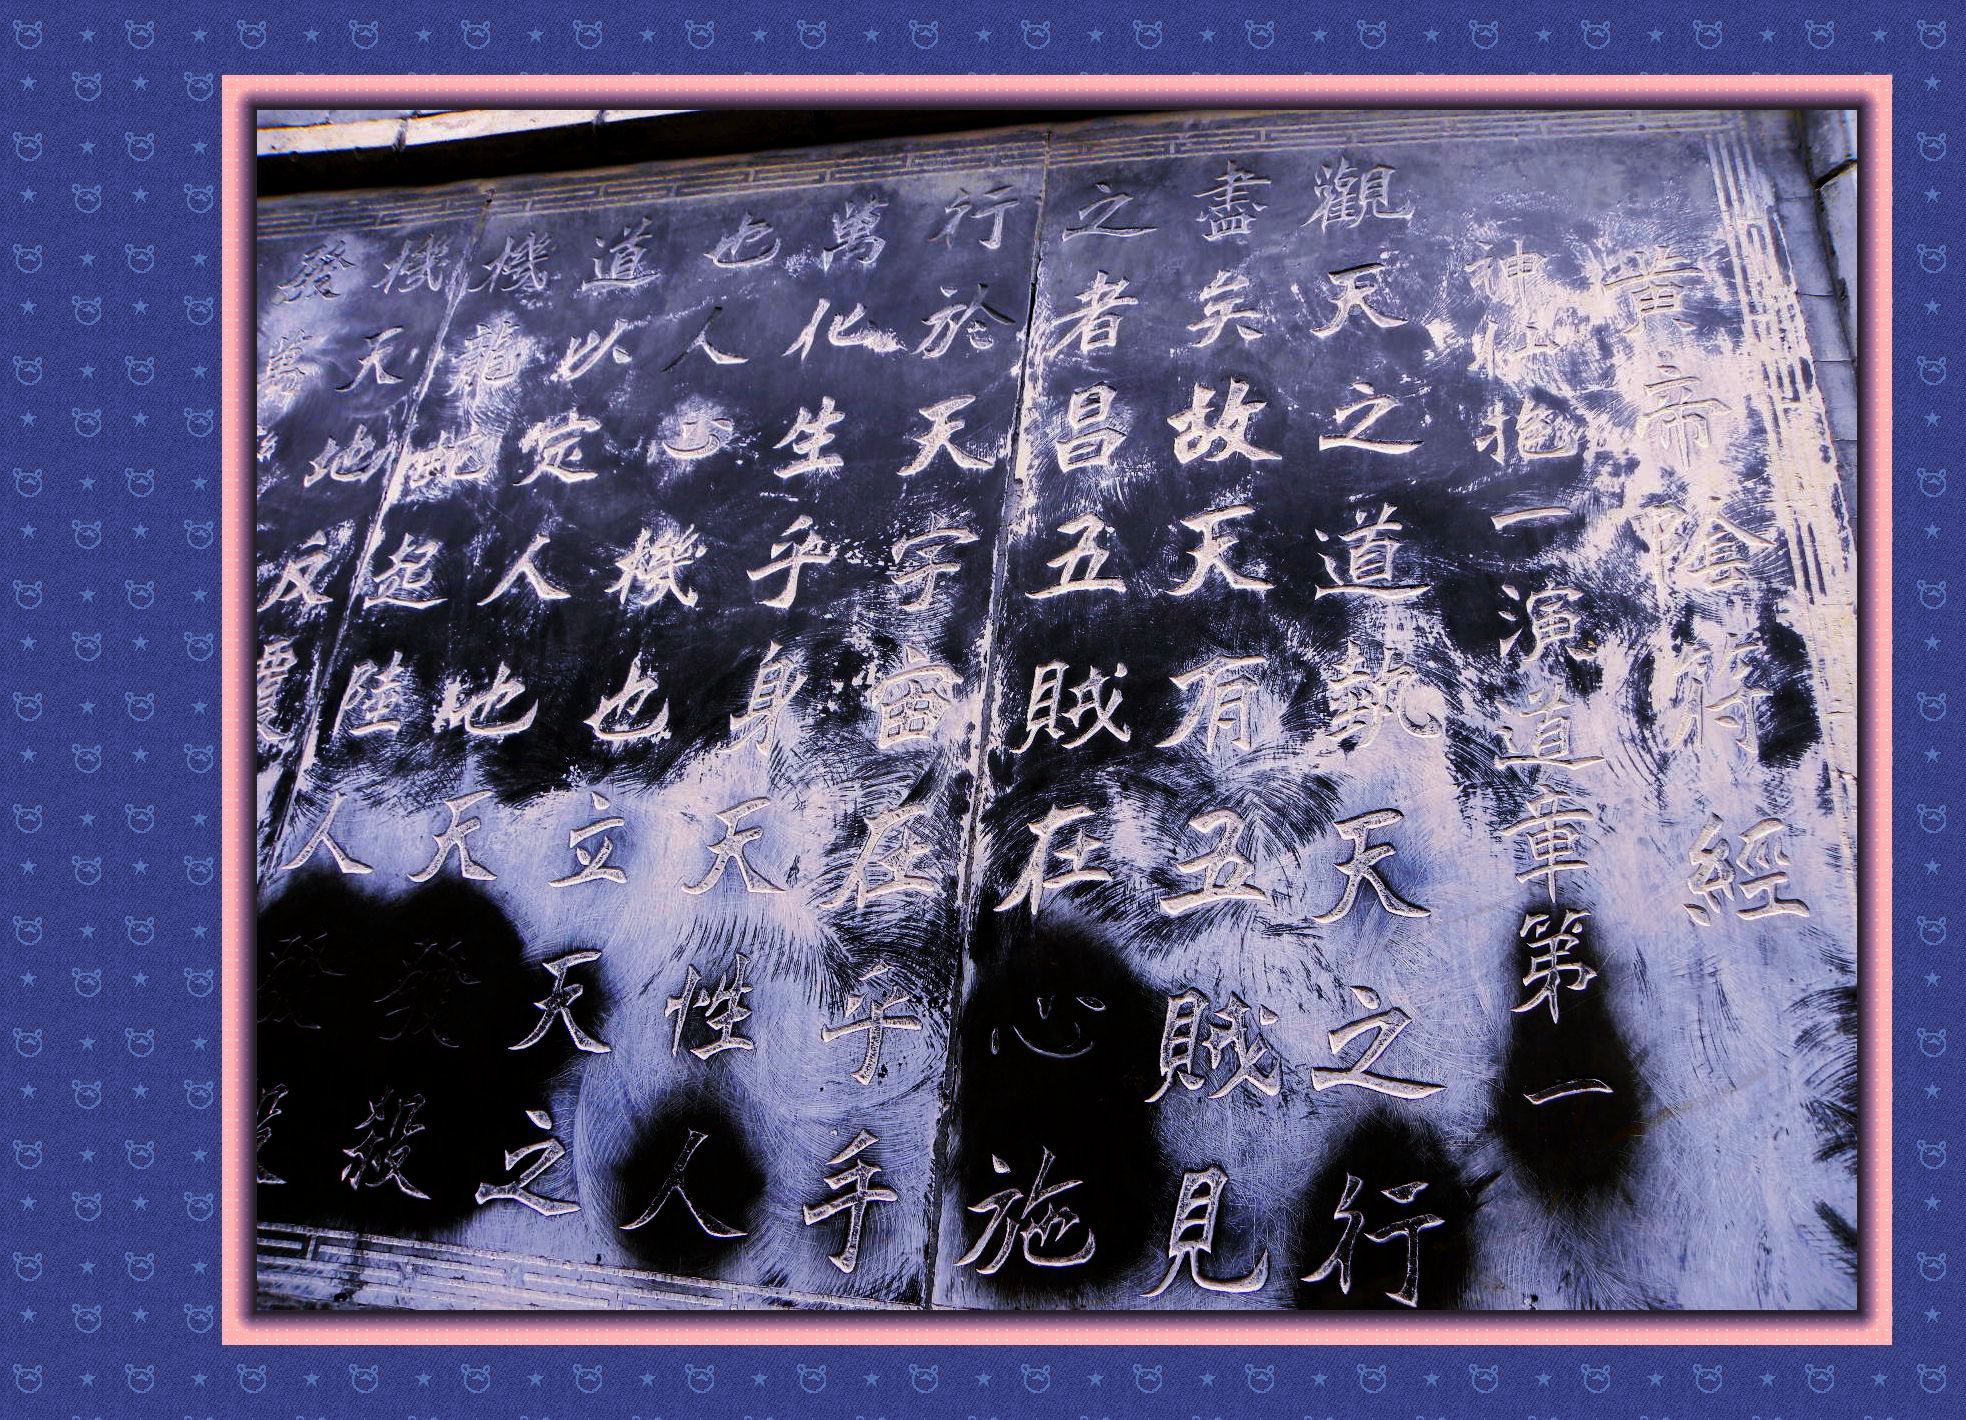 黃帝陰符經
神仙抱一演道章第一
觀天之道執天之行
盡矣故天有五賊見
之者昌五賊在心施
行於天宇宙在乎手
萬化生乎身天性人
也人心機也立天之
道以定人也天發殺
機龍蛇起陸人發
機天地反覆
發萬